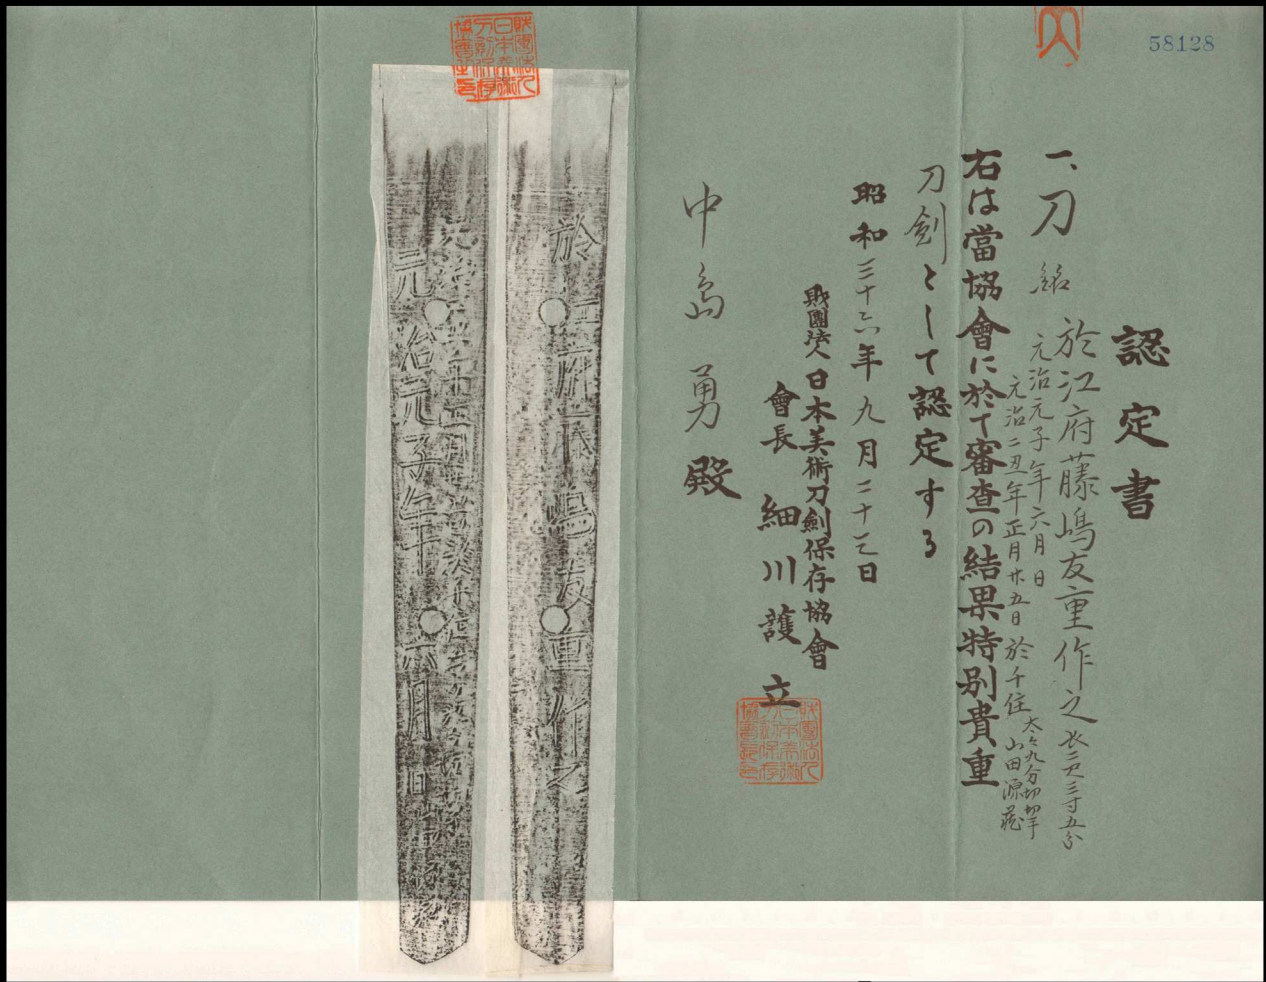 58128
認定書
一、刀 銘 於江府藤嶋友重作之 長二尺三寸五分
元治元子年六月日
元治二丑年正月廿五日於千住 太々九分切 山田源蔵
右は當協會に於て審査の結果特別貴重
刀劍として認定する
昭和三十六年九月二十三日
財團法人日本美術刀劍保存協會
會長 細川護立
中島勇殿
於江府藤嶋友重作之
元治元子年六月日